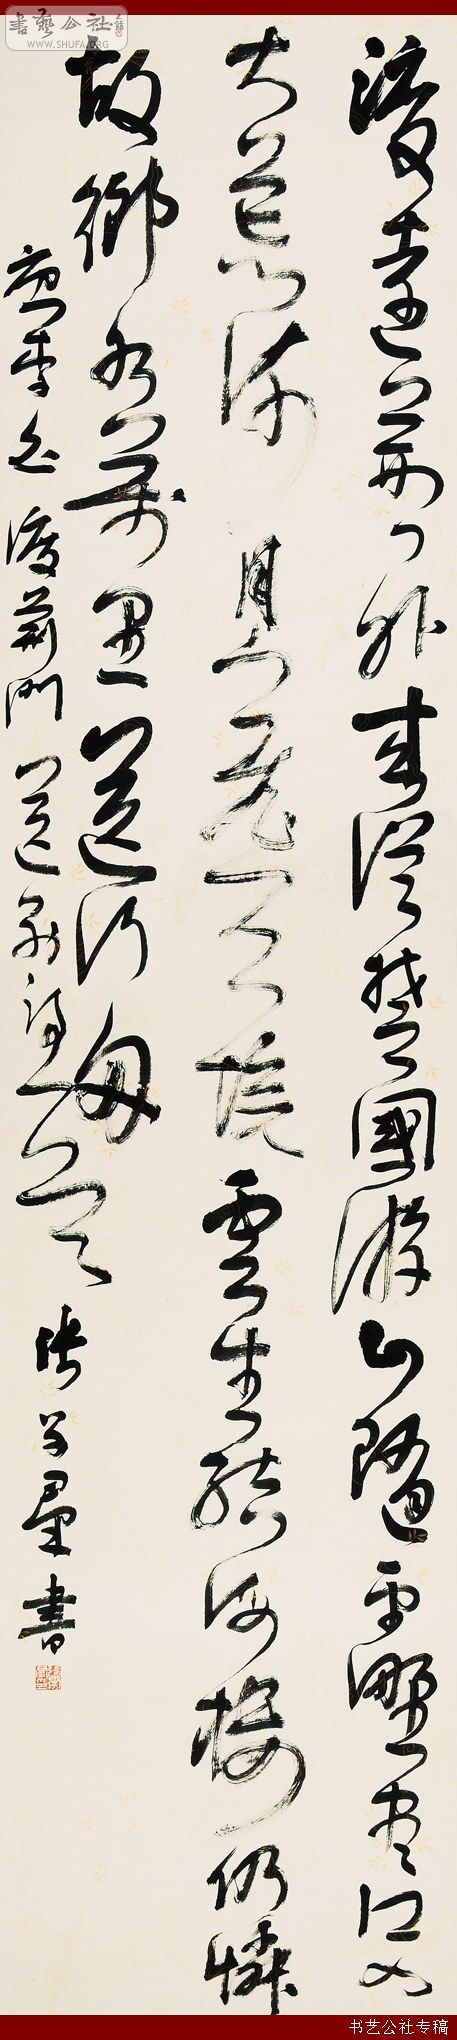 書藝公社
WWW.SHUFA.ORG
渡遠荊門外來從楚國游山隨平野盡江入
大荒流月下飛天鏡雲生結海樓仍憐
故鄉水萬里送行舟
唐李白渡荊門送別詩一首 張書
书艺公社专稿